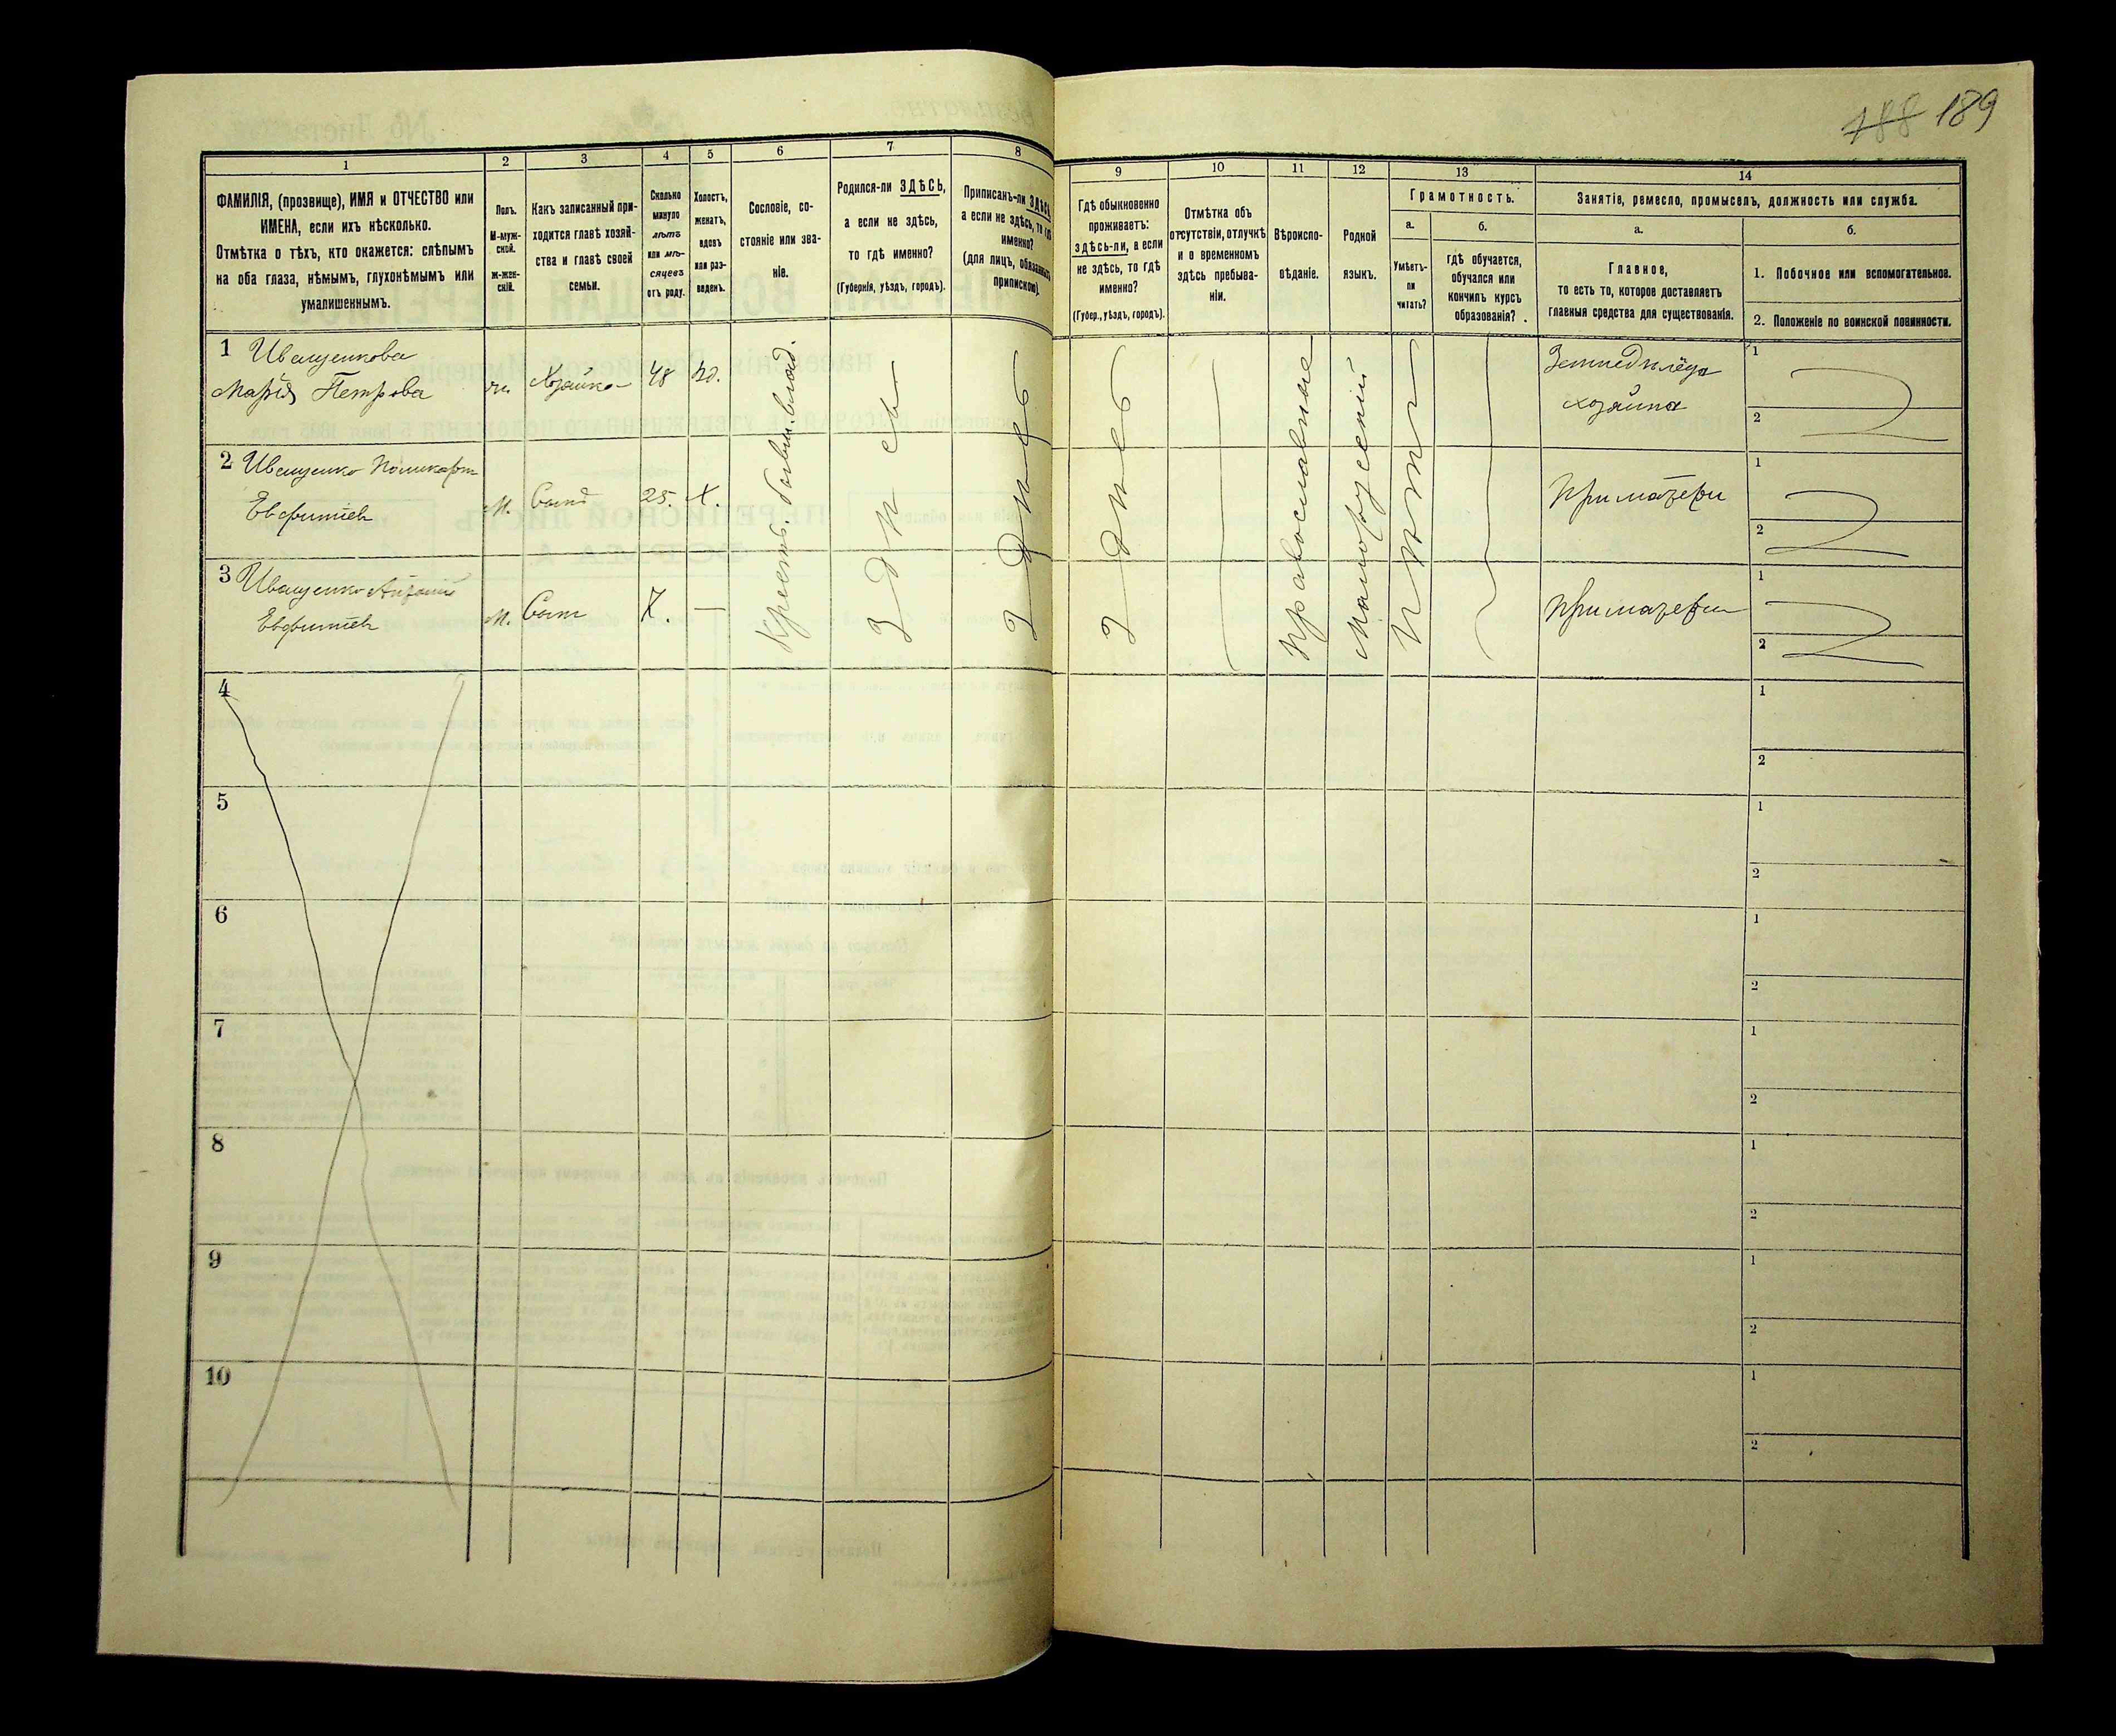 188 189
1 2 3 4 5 6 7 8 9 10 11 12 13 14
ФАМИЛІЯ, (прозвище), ИМЯ и ОТЧЕСТВО или
ИМЕНА, если ихъ нѣсколько.
Отмѣтка о тѣхъ, кто окажется: слѣпымъ
на оба глаза, нѣмымъ, глухонѣмымъ или
умалишеннымъ.
Полъ.
М-муж-
ской.
Ж-жен-
скій.
Какъ записанный при-
ходится главѣ хозяй-
ства и главѣ своей
семьи.
Сколько
минуло
лѣтъ
или мѣ-
сяцевъ
отъ роду.
Холостъ,
женатъ,
вдовъ
или раз-
веденъ.
Сословіе, со-
стояніе или зва-
ніе.
Родился-ли ЗДѢСЬ,
а если не здѣсь,
то гдѣ именно?
(Губернія, уѣздъ, городъ).
Приписанъ-ли ЗДѢСЬ,
а если не здѣсь, то гдѣ
именно?
(для лицъ, обязанныхъ
припискою).
Гдѣ обыкновенно
проживаетъ:
здѣсь-ли, а если
не здѣсь, то гдѣ
именно?
(Губер., уѣздъ, городъ).
Отмѣтка объ
отсутствіи, отлучкѣ
и о временномъ
здѣсь пребыва-
ніи.
Вѣроиспо-
вѣданіе.
Родной
языкъ.
Грамотность.
а.
Умѣетъ-
ли
читать?
б.
гдѣ обучается,
обучался или
кончилъ курсъ
образованія?
Занятіе, ремесло, промыселъ, должность или служба.
а.
Главное,
то есть то, которое доставляетъ
главныя средства для существованія.
б.
1. Побочное или вспомогательное.
2. Положеніе по воинской повинности.
1 Иващенкова
Марія Петрова ж. Хозяйка 48 вд.
Землѣдѣлецъ
хозяйка
1
2
2 Иващенко Поликарпъ
Евфиміевъ М. Сынъ 25 Х.
При матери
1
2
3 Иващенко
Евфиміевъ М. Сынъ 7. —
При матери
1
2
Крестьян.
Здѣсь
Здѣсь
Здѣсь
Православные
Малорусскій
Нѣтъ
4
1
2
5
1
2
6
1
2
7
1
2
8
1
2
9
1
2
10
1
2